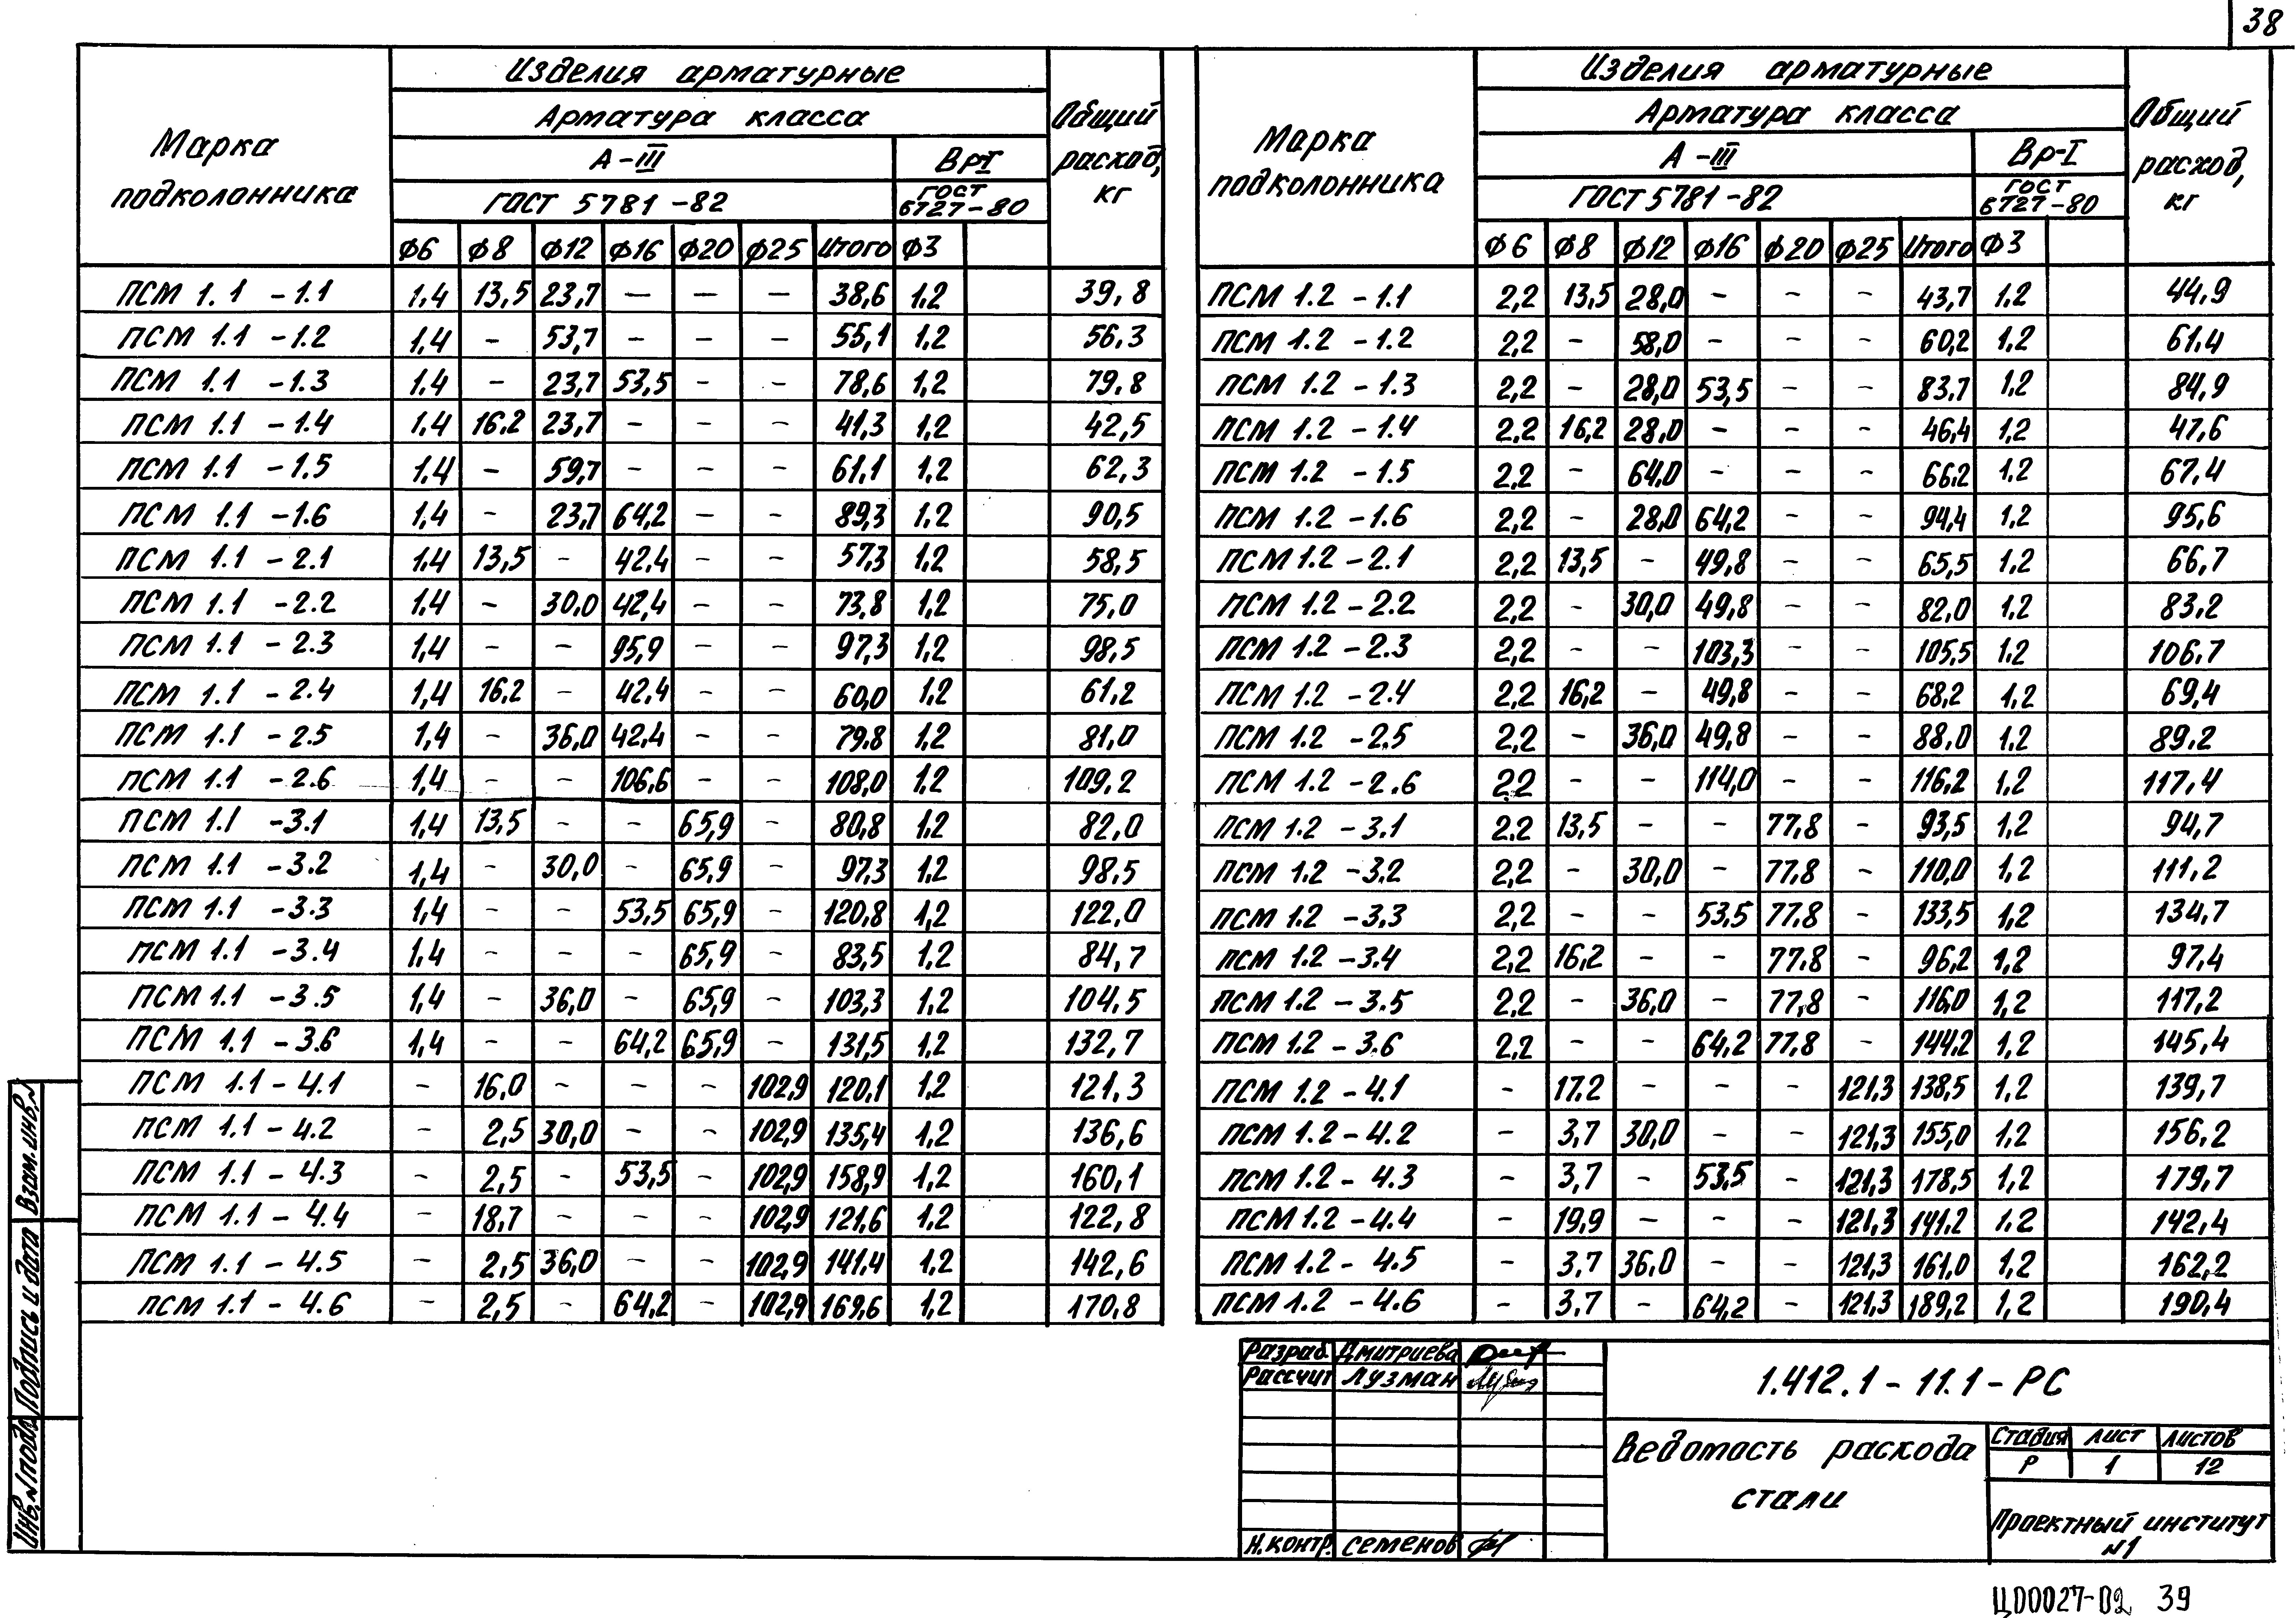 38
Изделия арматурные
Арматура класса
Марка подколонника
А-III
Вр-I
Общий расход, кг
ГОСТ 5781-82
ГОСТ 6727-80
ф6 ф8 ф12 ф16 ф20 ф25 Итого ф3
ПСМ 1.1 -1.1 1,4 13,5 23,7 — — — 38,6 1,2 39,8
ПСМ 1.1 -1.2 1,4 - 53,7 - - - 55,1 1,2 56,3
ПСМ 1.1 -1.3 1,4 - 23,7 53,5 - - 78,6 1,2 79,8
ПСМ 1.1 -1.4 1,4 16,2 23,7 - - - 41,3 1,2 42,5
ПСМ 1.1 -1.5 1,4 - 59,7 - - - 61,1 1,2 62,3
ПСМ 1.1 -1.6 1,4 - 23,7 64,2 - - 89,3 1,2 90,5
ПСМ 1.1 -2.1 1,4 13,5 - 42,4 - - 57,3 1,2 58,5
ПСМ 1.1 -2.2 1,4 - 30,0 42,4 - - 73,8 1,2 75,0
ПСМ 1.1 -2.3 1,4 - - 95,9 - - 97,3 1,2 98,5
ПСМ 1.1 -2.4 1,4 16,2 - 42,4 - - 60,0 1,2 61,2
ПСМ 1.1 -2.5 1,4 - 36,0 42,4 - - 79,8 1,2 81,0
ПСМ 1.1 -2.6 1,4 - - 106,6 - - 108,0 1,2 109,2
ПСМ 1.1 -3.1 1,4 13,5 - - 65,9 - 80,8 1,2 82,0
ПСМ 1.1 -3.2 1,4 - 30,0 - 65,9 - 97,3 1,2 98,5
ПСМ 1.1 -3.3 1,4 - - 53,5 65,9 - 120,8 1,2 122,0
ПСМ 1.1 -3.4 1,4 - - - 65,9 - 83,5 1,2 84,7
ПСМ 1.1 -3.5 1,4 - 36,0 - 65,9 - 103,3 1,2 104,5
ПСМ 1.1 -3.6 1,4 - - 64,2 65,9 - 131,5 1,2 132,7
ПСМ 1.1 -4.1 - 16,0 - - - 102,9 120,1 1,2 121,3
ПСМ 1.1 -4.2 - 2,5 30,0 - - 102,9 135,4 1,2 136,6
ПСМ 1.1 -4.3 - 2,5 - 53,5 - 102,9 158,9 1,2 160,1
ПСМ 1.1 -4.4 - 18,7 - - - 102,9 121,6 1,2 122,8
ПСМ 1.1 -4.5 - 2,5 36,0 - - 102,9 141,4 1,2 142,6
ПСМ 1.1 -4.6 - 2,5 - 64,2 - 102,9 169,6 1,2 170,8
Изделия арматурные
Арматура класса
Марка подколонника
А-III
Вр-I
Общий расход, кг
ГОСТ 5781-82
ГОСТ 6727-80
ф6 ф8 ф12 ф16 ф20 ф25 Итого ф3
ПСМ 1.2 -1.1 2,2 13,5 28,0 - - - 43,7 1,2 44,9
ПСМ 1.2 -1.2 2,2 - 58,0 - - - 60,2 1,2 61,4
ПСМ 1.2 -1.3 2,2 - 28,0 53,5 - - 83,7 1,2 84,9
ПСМ 1.2 -1.4 2,2 16,2 28,0 - - - 46,4 1,2 47,6
ПСМ 1.2 -1.5 2,2 - 64,0 - - - 66,2 1,2 67,4
ПСМ 1.2 -1.6 2,2 - 28,0 64,2 - - 94,4 1,2 95,6
ПСМ 1.2 -2.1 2,2 13,5 - 49,8 - - 65,5 1,2 66,7
ПСМ 1.2 -2.2 2,2 - 30,0 49,8 - - 82,0 1,2 83,2
ПСМ 1.2 -2.3 2,2 - - 103,3 - - 105,5 1,2 106,7
ПСМ 1.2 -2.4 2,2 16,2 - 49,8 - - 68,2 1,2 69,4
ПСМ 1.2 -2.5 2,2 - 36,0 49,8 - - 88,0 1,2 89,2
ПСМ 1.2 -2.6 2,2 - - 114,0 - - 116,2 1,2 117,4
ПСМ 1.2 -3.1 2,2 13,5 - - 77,8 - 93,5 1,2 94,7
ПСМ 1.2 -3.2 2,2 - 30,0 - 77,8 - 110,0 1,2 111,2
ПСМ 1.2 -3.3 2,2 - - 53,5 77,8 - 133,5 1,2 134,7
ПСМ 1.2 -3.4 2,2 16,2 - - 77,8 - 96,2 1,2 97,4
ПСМ 1.2 -3.5 2,2 - 36,0 - 77,8 - 116,0 1,2 117,2
ПСМ 1.2 -3.6 2,2 - - 64,2 77,8 - 144,2 1,2 145,4
ПСМ 1.2 -4.1 - 17,2 - - - 121,3 138,5 1,2 139,7
ПСМ 1.2 -4.2 - 3,7 30,0 - - 121,3 155,0 1,2 156,2
ПСМ 1.2 -4.3 - 3,7 - 53,5 - 121,3 178,5 1,2 179,7
ПСМ 1.2 -4.4 - 19,9 - - - 121,3 141,2 1.2 142,4
ПСМ 1.2 -4.5 - 3,7 36,0 - - 121,3 161,0 1,2 162,2
ПСМ 1.2 -4.6 - 3,7 - 64,2 - 121,3 189,2 1,2 190,4
Взам.инв.№
Подпись и дата
Инв.№подл
Разраб. Дмитриева
Рассчит Лузман
Н.контр. Семенов
1.412.1-11.1-РС
Ведомость расхода
стали
Стадия Лист Листов
Р 1 12
Проектный институт
№1
Ц00027-02 39